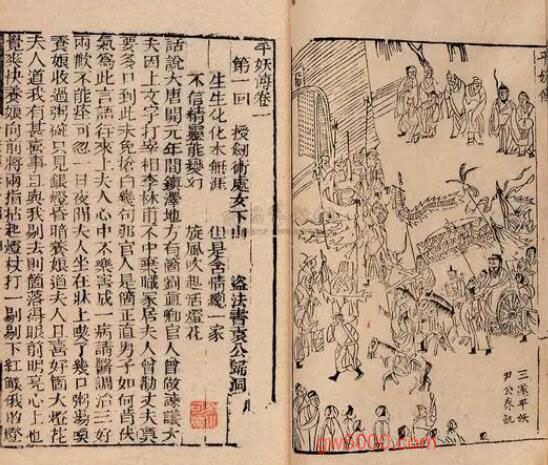 平妖傳
三遂平妖
尹公奏凱
平妖傳卷一
第一回 授劍術處女下山 盜法書袁公歸洞
生生化化本無涯 但是含情總一家
不信精靈能變幻 旋風吹起活燈花
話說大唐開元年間鎮澤地方有箇劉直卿官人曾做諫議大
夫因上文字打宰相李林甫不中棄職家居夫人曾勸丈夫莫
要多口到此未免搶白幾句那官人是箇正直男子如何肯伏
氣爲此言語往來上夫人心中不樂害成一病請醫調治三好
兩歉不能痊可忽一日夜間夫人坐在牀上喫了幾口粥湯喚
養娘收過粥碗只見銀燈昏暗養娘道夫人且喜好箇大燈花
夫人道我有甚喜事且與我剔去則箇落得眼前明亮心上也
覺爽快養娘向前將兩指拈起燈杖打一剔剔下紅俄的燈